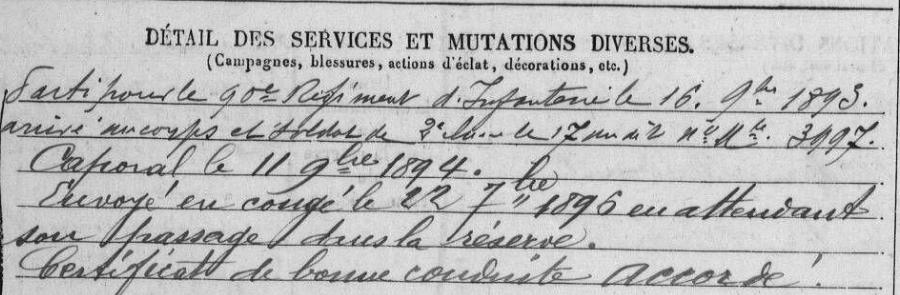 DÉTAIL DES SERVICES ET MUTATIONS DIVERSES.
(Campagnes, blessures, actions d'éclat, décorations, etc.)
Parti pour le 90e Régiment d'Infanterie le 16. 9bre 1893.
arrivé au corps et soldat de 2e classe le 17 au dit n° Mle. 3997.
Caporal le 11 9bre 1894.
Envoyé en congé le 22 7bre 1896 en attendant
son passage dans la réserve.
Certificat de bonne conduite accordé.